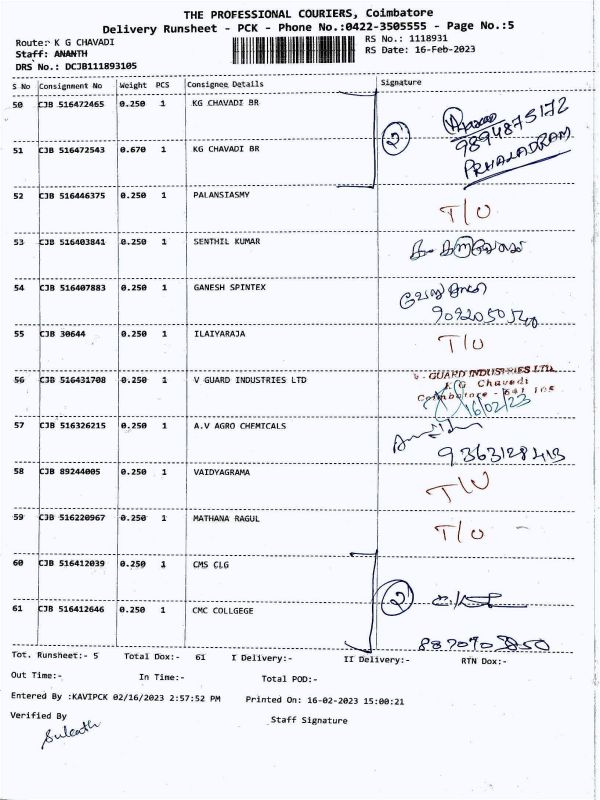 THE PROFESSIONAL COURIERS, Coimbatore
Delivery Runsheet - PCK - Phone No.:0422-3505555 - Page No.:5
Route: K G CHAVADI RS No.: 1118931
Staff: ANANTH RS Date: 16-Feb-2023
DRS No.: DCJB111893105
S No Consignment No Weight PCS Consignee Details Signature
50 CJB 516472465 0.250 1 KG CHAVADI BR
2 9894875172
51 CJB 516472543 0.670 1 KG CHAVADI BR
PRHALADRAM
52 CJB 516446375 0.250 1 PALANSIASMY T/U
53 CJB 516403841 0.250 1 SENTHIL KUMAR
54 CJB 516407883 0.250 1 GANESH SPINTEX
55 CJB 30644 0.250 1 ILAIYARAJA T/U
56 CJB 516431708 0.250 1 V GUARD INDUSTRIES LTD V - GUARD INDUSTRIES LTD.
K G Chavadi
Coimbatore - 641 105
16/02/23
57 CJB 516326215 0.250 1 A.V AGRO CHEMICALS
9363128413
58 CJB 89244005 0.250 1 VAIDYAGRAMA T/U
59 CJB 516220967 0.250 1 MATHANA RAGUL T/U
60 CJB 516412039 0.250 1 CMS CLG
2
61 CJB 516412646 0.250 1 CMC COLLGEGE
Tot. Runsheet:- 5 Total Dox:- 61 I Delivery:- II Delivery:- RTN Dox:-
Out Time:- In Time:- Total POD:-
Entered By :KAVIPCK 02/16/2023 2:57:52 PM Printed On: 16-02-2023 15:00:21
Verified By Staff Signature